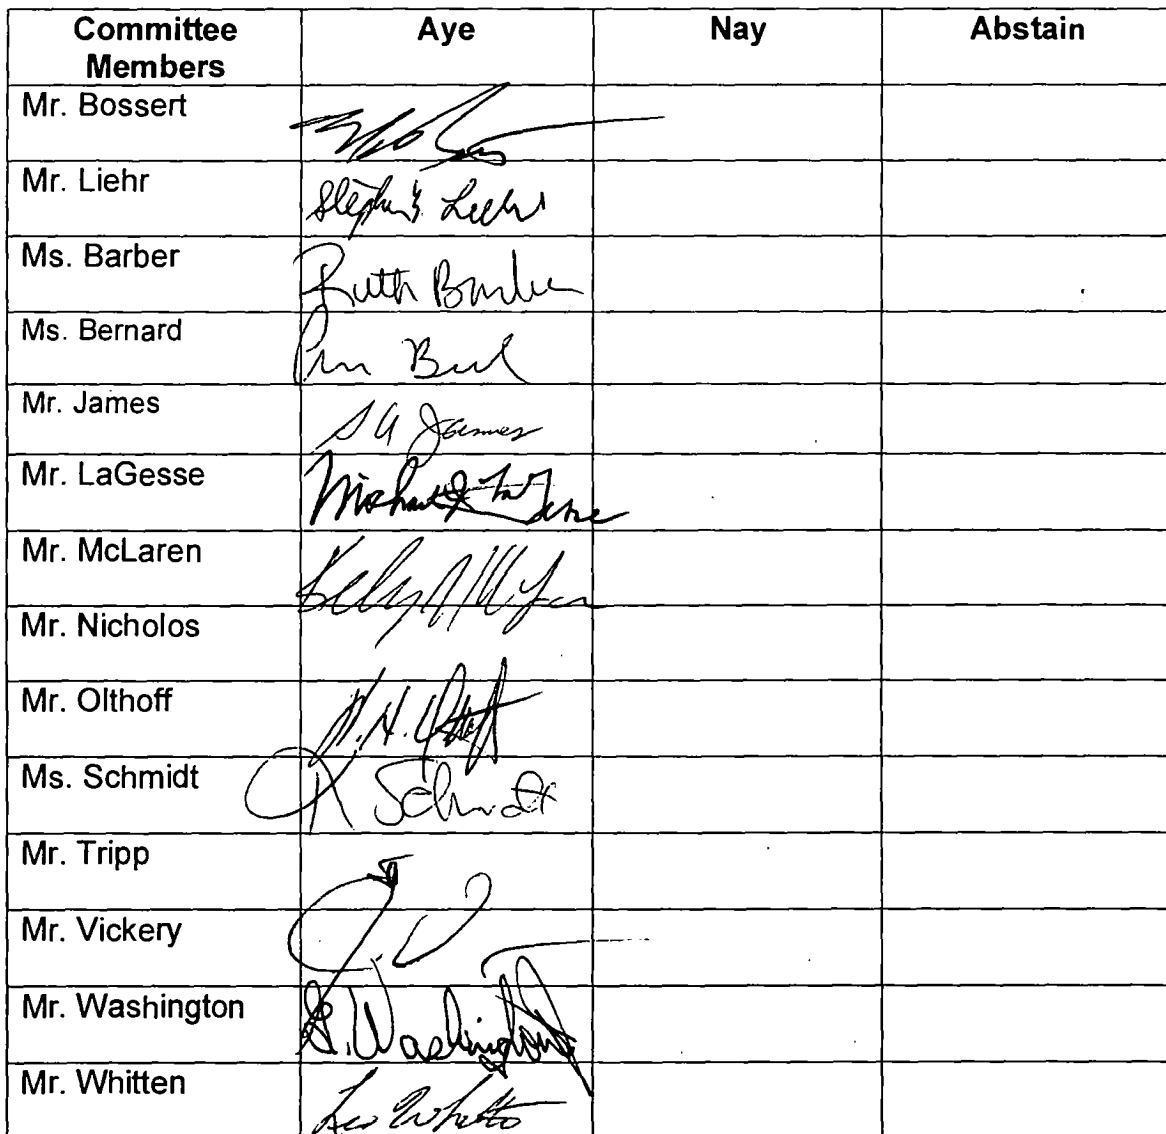 Committee Members Aye Nay Abstain
Mr. Bossert
Mr. Liehr Stephen Liehr
Ms. Barber Ruth Barber
Ms. Bernard
Mr. James S A James
Mr. LaGesse Michael LaGesse
Mr. McLaren
Mr. Nicholos
Mr. Olthoff
Ms. Schmidt R Schmidt
Mr. Tripp
Mr. Vickery
Mr. Washington S. Washington
Mr. Whitten Leo Whitten